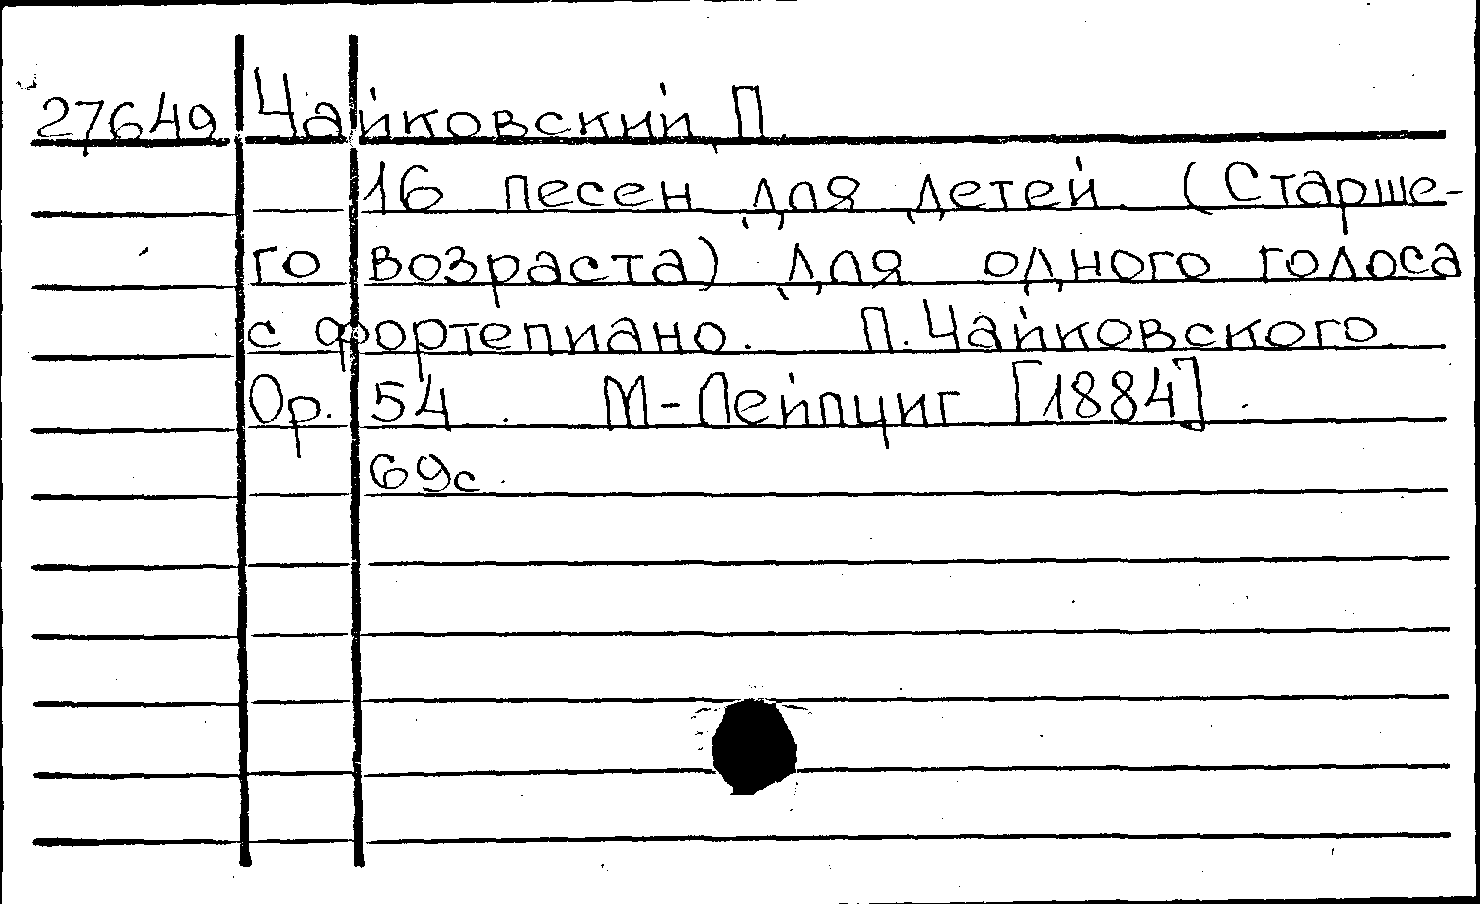 27649 Чайковский П.
16 песен для детей. (Старше-
го возраста) для одного голоса
с фортепиано. П. Чайковского.
Op. 54. М-Лейпциг [1884].
69с.